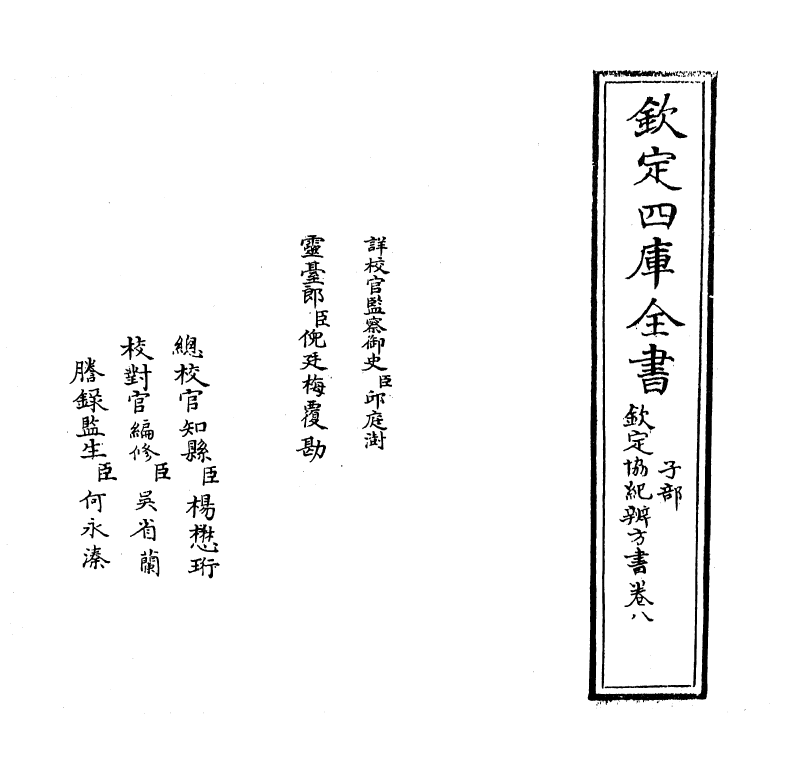 欽定四庫全書
子部
欽定協紀辨方書卷八
詳校官監察御史臣邱庭澍
靈臺郎臣倪廷梅覆勘
總校官知縣臣楊懋珩
校對官編修臣吳省蘭
謄錄監生臣何永溱